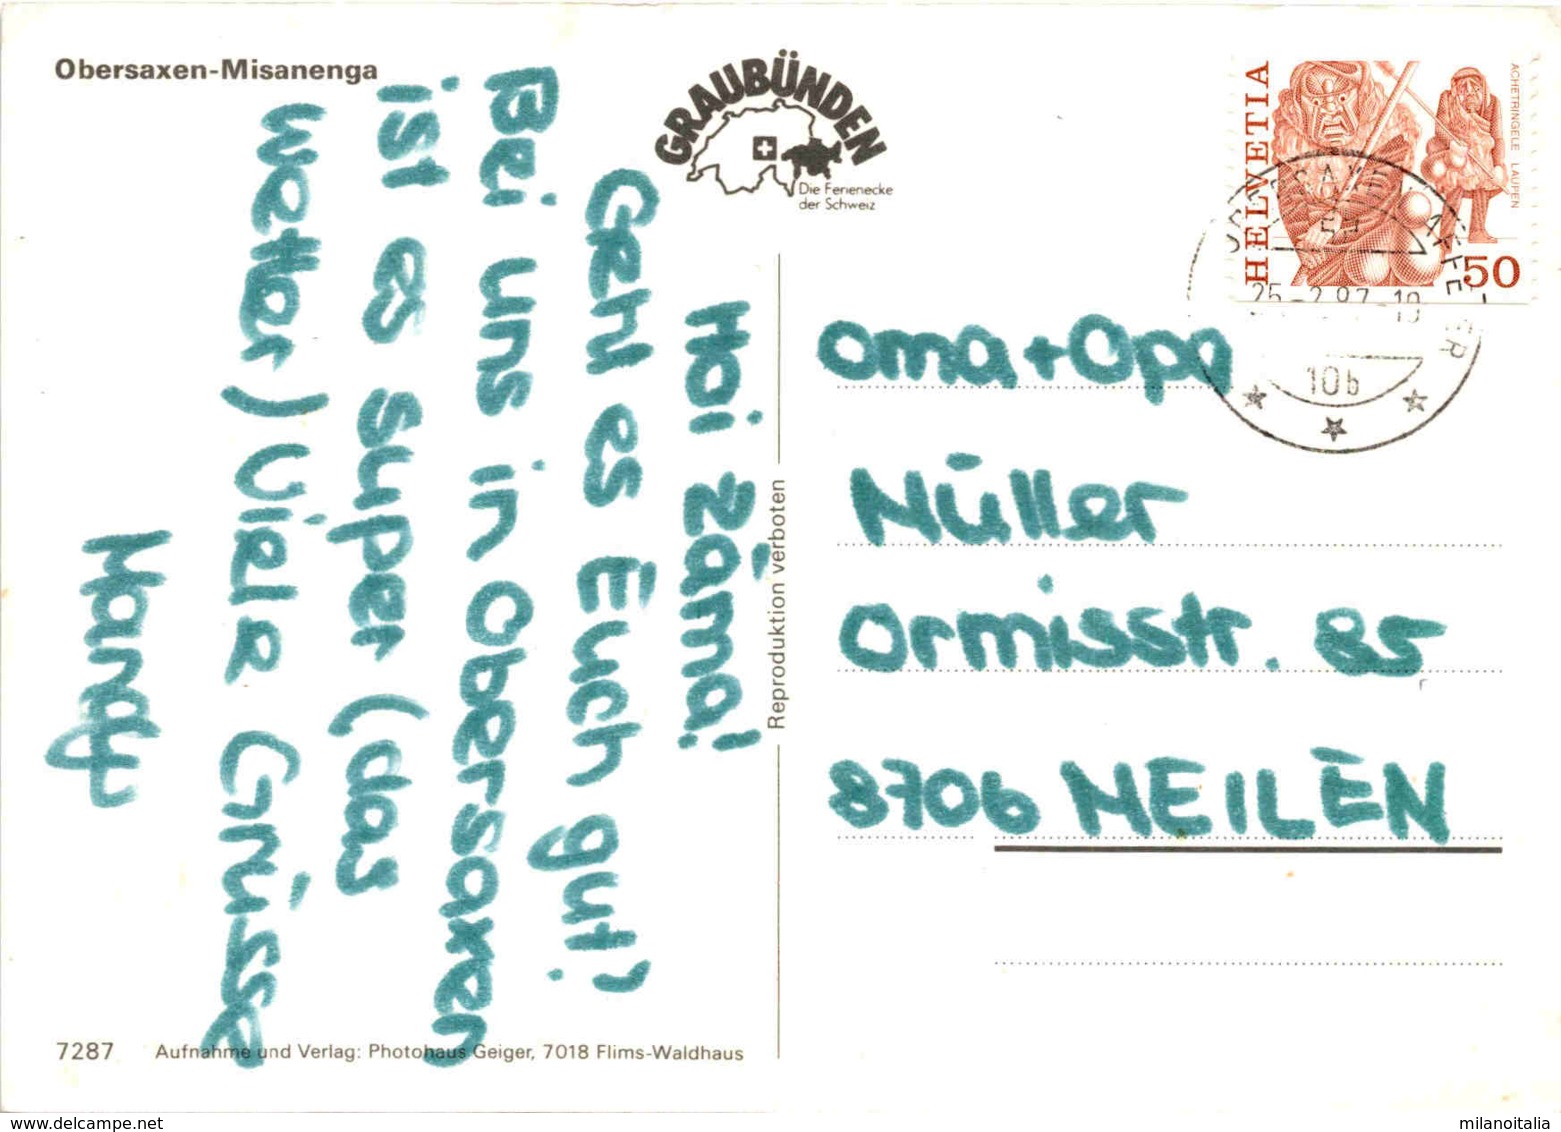 Obersaxen-Misanenga
GRAUBÜNDEN
Die Ferienecke
der Schweiz
HELVETIA
ACHETRINGELE LAUPEN
50
25-2.97-19
10b
Hoi Zäma!
Geht es Euch gut?
Bei uns in Obersaxen
ist es super (das
Wetter) Viele Grüsse
Mandy
Oma+Opa
Müller
Ormisstr. 85
8706 MEILEN
Reproduktion verboten
7287 Aufnahme und Verlag: Photohaus Geiger, 7018 Flims-Waldhaus
www.delcampe.net
milanoitalia